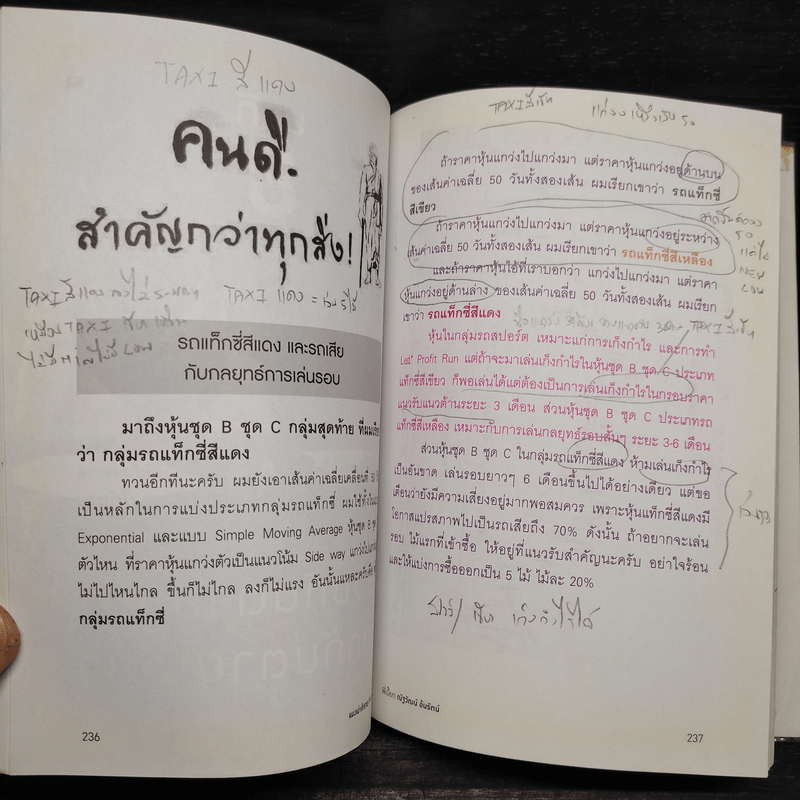 TAXI สี แดง
คนดี.
สำคัญกว่าทุกสิ่ง!
TAXI สีแดง
TAXI แดง =
TAXI
รถแท็กซี่สีแดง และรถเสีย
กับกลยุทธ์การเล่นรอบ
มาถึงหุ้นชุด B ชุด C กลุ่มสุดท้าย
ว่า กลุ่มรถแท็กซี่สีแดง
ทวนอีกทีนะครับ ผมยังเอาเส้นค่าเฉลี่ยเคลื่อนที่
เป็นหลักในการแบ่งประเภทกลุ่มรถแท็กซี่ ผมใช้ทั้ง
Exponential และแบบ Simple Moving Average หุ้นชุด B
ตัวไหน ที่ราคาหุ้นแกว่งตัวเป็นแนวโน้ม Side way
ไม่ไปไหนไกล ขึ้นก็ไม่ไกล ลงก็ไม่แรง อันนั้นแหละครับ
กลุ่มรถแท็กซี่
236
TAXI
ถ้าราคาหุ้นแกว่งไปแกว่งมา แต่ราคาหุ้นแกว่งอยู่ด้านบน
ของเส้นค่าเฉลี่ย 50 วันทั้งสองเส้น ผมเรียกเขาว่า รถแท็กซี่
สีเขียว
ถ้าราคาหุ้นแกว่งไปแกว่งมา แต่ราคาหุ้นแกว่งอยู่ระหว่าง
เส้นค่าเฉลี่ย 50 วันทั้งสองเส้น ผมเรียกเขาว่า รถแท็กซี่สีเหลือง
และถ้าราคาหุ้นไอ้ที่เราบอกว่า แกว่งไปแกว่งมา แต่ราคา
หุ้นแกว่งอยู่ด้านล่าง ของเส้นค่าเฉลี่ย 50 วันทั้งสองเส้น ผมเรียก
เขาว่า รถแท็กซี่สีแดง
หุ้นในกลุ่มรถสปอร์ต เหมาะแก่การเก็งกำไร และการทำ
Let' Profit Run แต่ถ้าจะมาเล่นเก็งกำไรในหุ้นชุด B ชุด C ประเภท
แท็กซี่สีเขียว ก็พอเล่นได้แต่ต้องเป็นการเล่นเก็งกำไรในกรอบราคา
แนวรับแนวต้านระยะ 3 เดือน ส่วนหุ้นชุด B ชุด C ประเภทรถ
แท็กซี่สีเหลือง เหมาะกับการเล่นกลยุทธ์รอบสั้นๆ ระยะ 3-6 เดือน
ส่วนหุ้นชุด B ชุด C ในกลุ่มรถแท็กซี่สีแดง ห้ามเล่นเก็งกำไร
เป็นอันขาด เล่นรอบยาวๆ 6 เดือนขึ้นไปได้อย่างเดียว แต่ขอ
เตือนว่ายังมีความเสี่ยงอยู่มากพอสมควร เพราะหุ้นแท็กซี่สีแดงมี
โอกาสแปรสภาพไปเป็นรถเสียถึง 70% ดังนั้น ถ้าอยากจะเล่น
รอบ ไม้แรกที่เข้าซื้อ ให้อยู่ที่แนวรับสำคัญนะครับ อย่าใจร้อน
และให้แบ่งการซื้อออกเป็น 5 ไม้ ไม้ละ 20%
237